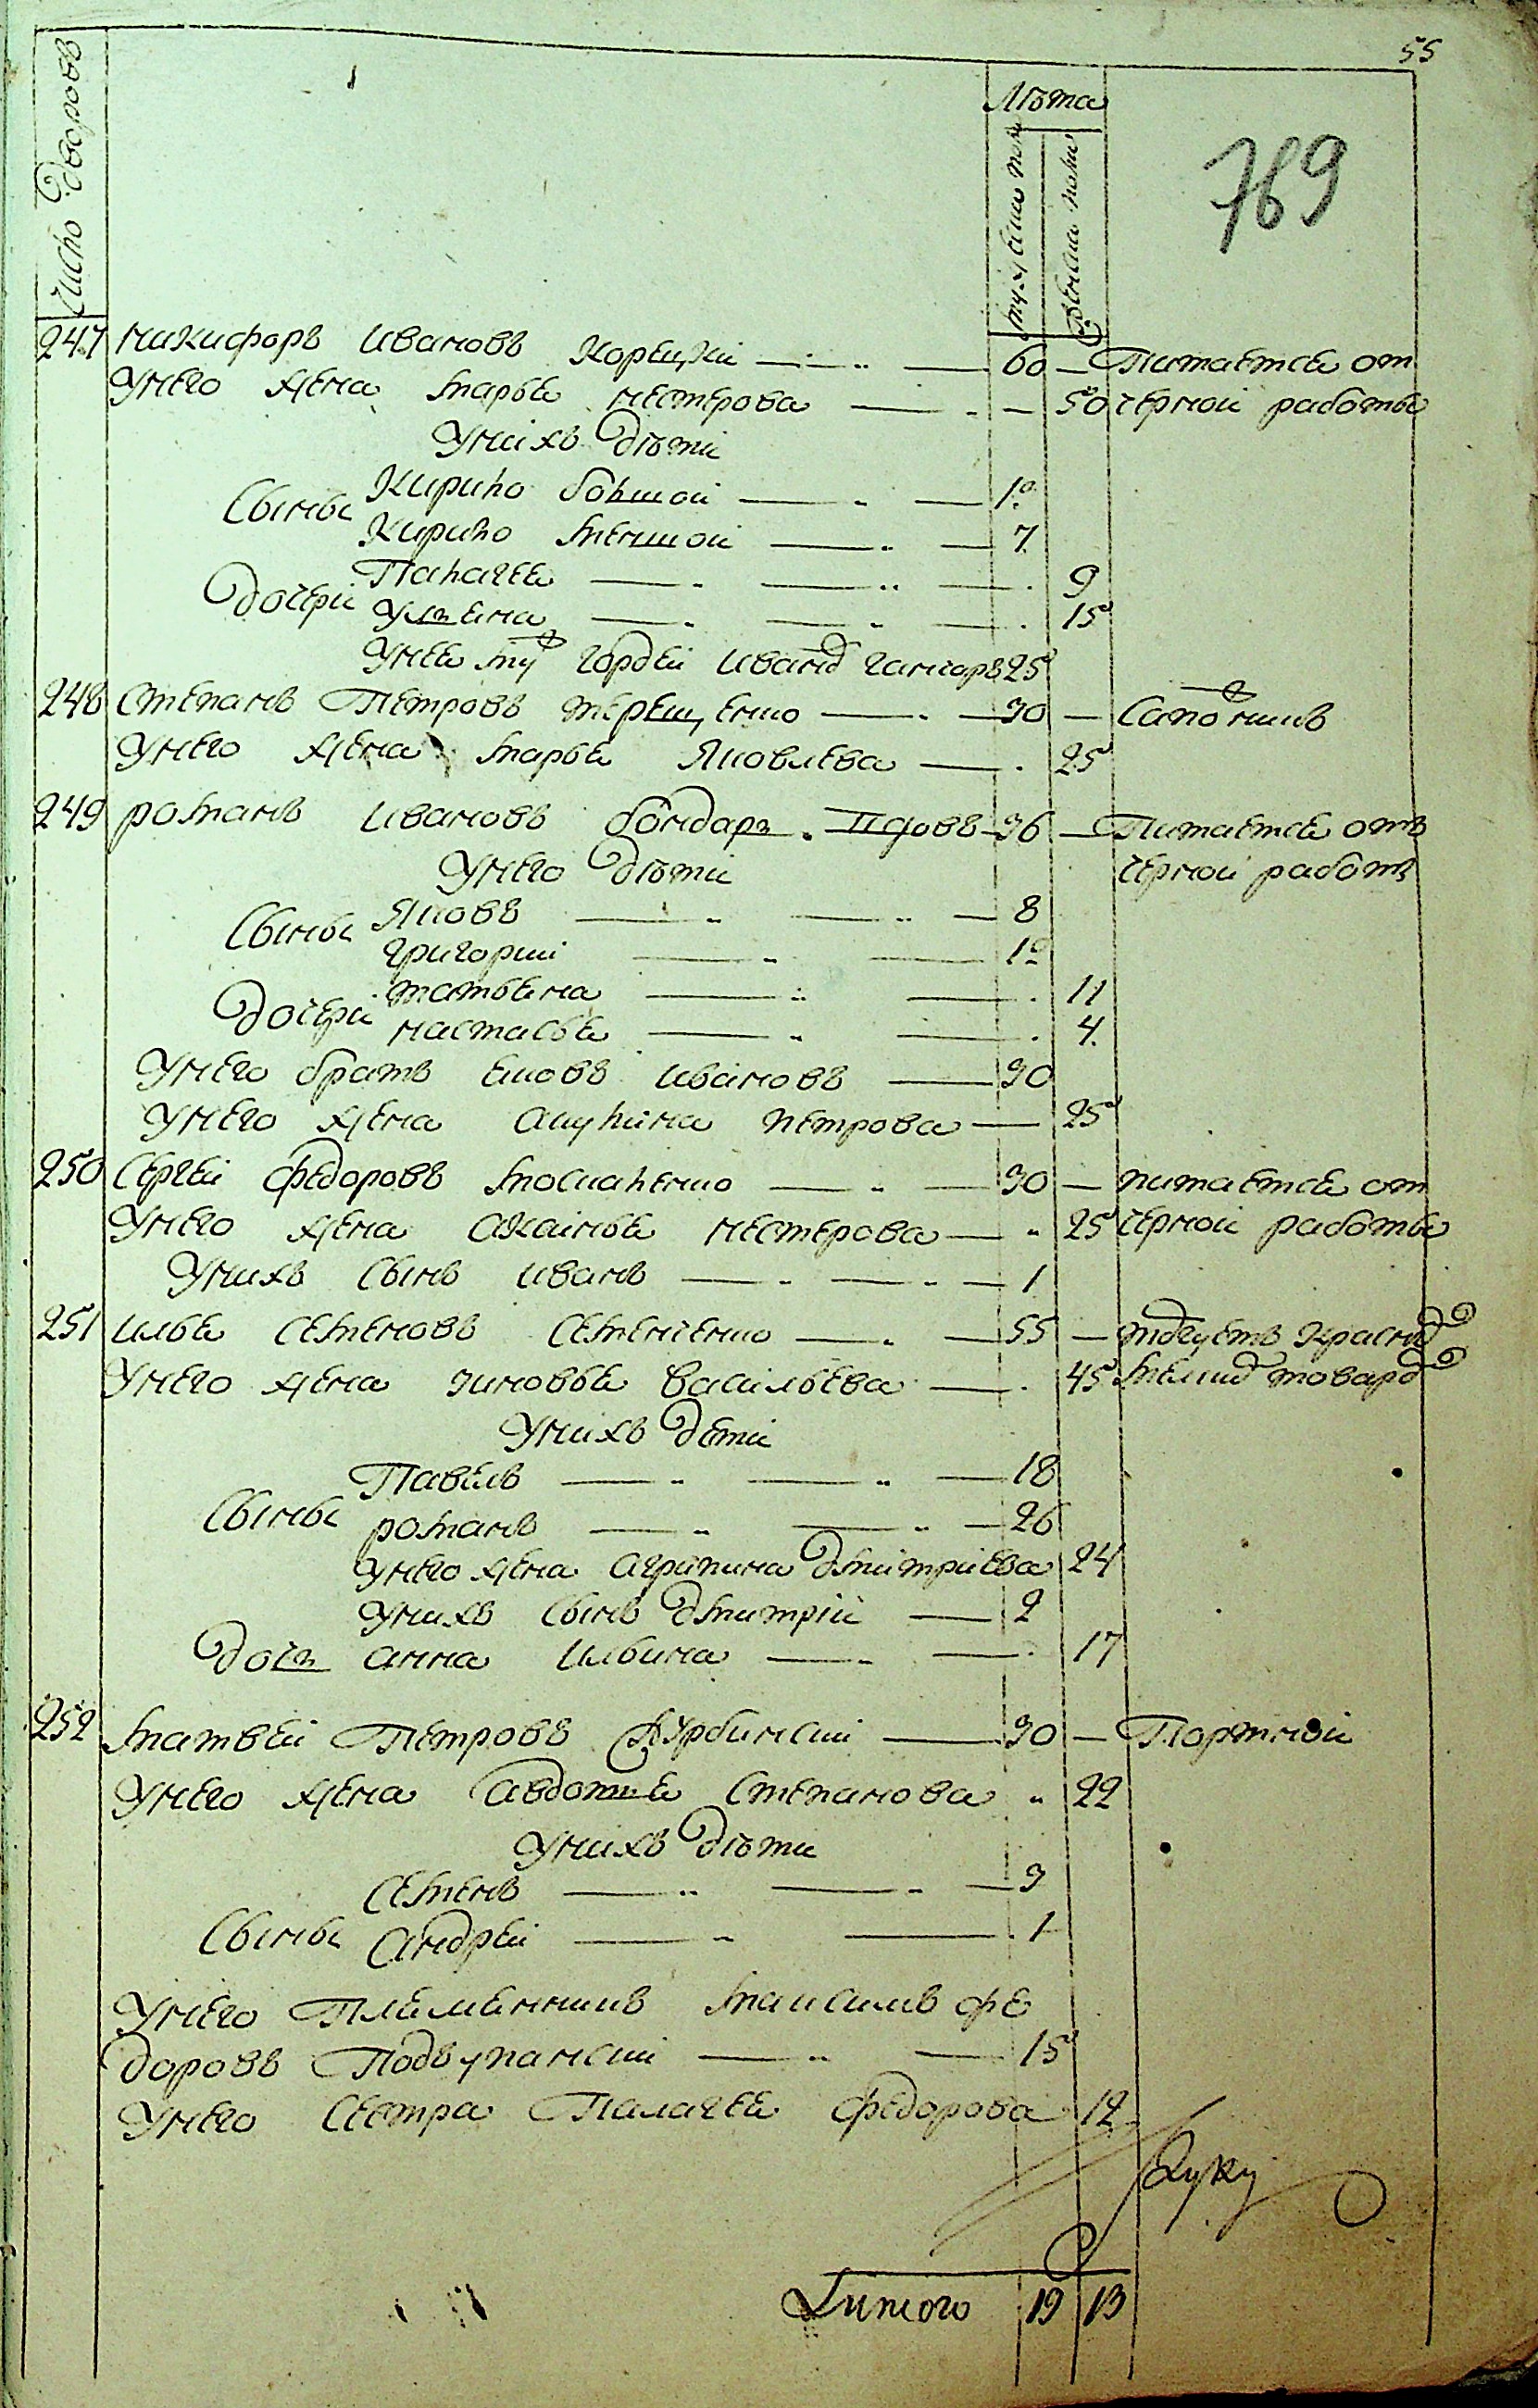 55
Число дворовъ
Лѣта
мужеска полу
женска полу
769
247 Микифоръ Ивановъ Корецкій — 60 — Питаетса от
У него жена Марья Нестерова — 50 черной работы
У нихъ дѣти
Сыны Кирило болшой — 10
Кирило меншой — 7
Дочери Палагея — 9
Ульяна — 15
У нее му Гордей Иванд Ганчаръ 25
248 Степанъ Петровъ Терещенко — 30 — Сапожникъ
У него жена Марья Яковлева — 25
249 Романъ Ивановъ Бондарь вдовъ 36 — Питаетса отъ
У него дѣти черной работ
Сыны Яковъ — 8
Григорий — 10
Дочери Татьяна — 11
Настасья — 4
У него братъ Яковъ Ивановъ — 30
У него жена Акулина Петрова — 25
250 Сергей Федоровъ Москаленко — 30 — питаетса от
У него жена Оксинья Нестерова — 25 черной работы
У нихъ сынъ Иванъ — 1
251 Илья Семеновъ Семенченко — 55 — торгуетъ красны
У него жена Зиновья Васильева — 45 мелки товаро
У нихъ дети
Сыны Павелъ — 18
Романъ — 26
У него жена Агрипина Дмитриева 24
У нихъ сынъ Дмитрій — 2
Дочь Анна Ильина — 17
252 Матвей Петровъ Курбински — 30 — Портной
У него жена Авдотья Степанова 22
У нихъ дѣти
Семенъ — 3
Сыны Андрей — 1
У него племенникъ Максимъ Фе
доровъ Подвупански — 15
У него сестра Палагея Федорова 12
Руку
Итого 19 13